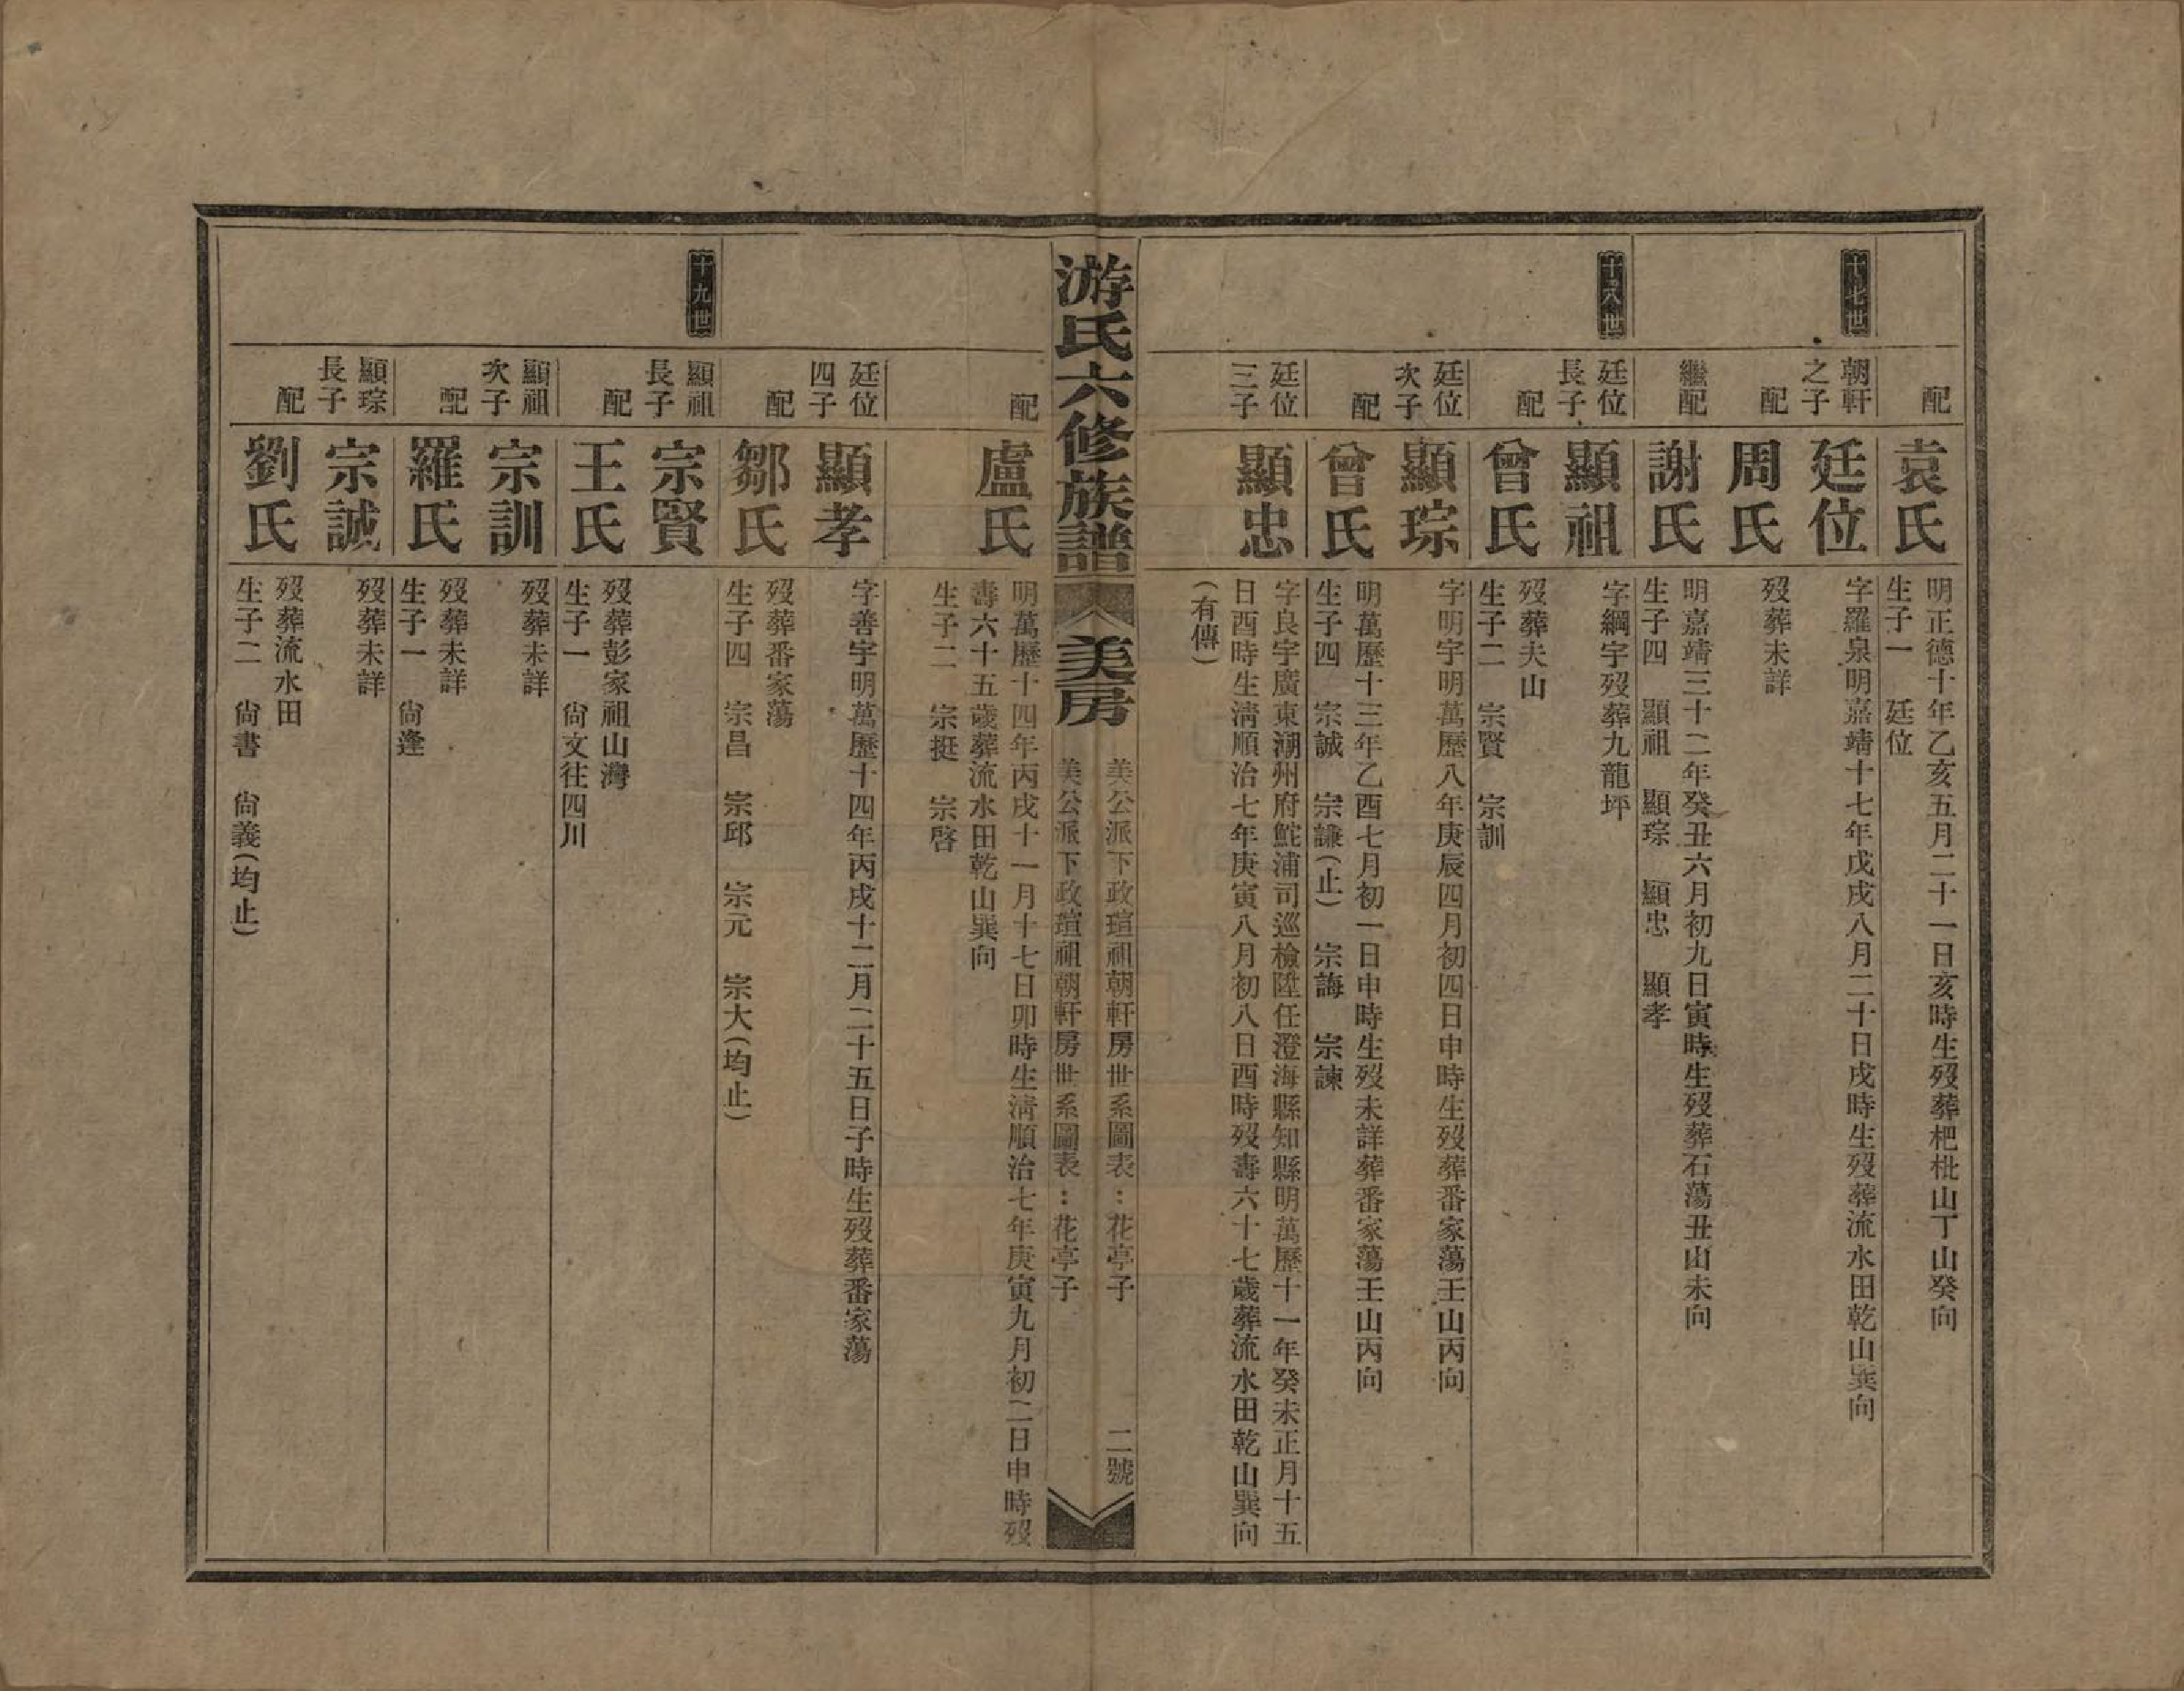 配
袁氏
明正德十年乙亥五月二十一日亥時生歿葬杷枇山丁山癸向
生子一　廷位
十七世
朝軒
之子
廷位
字羅泉明嘉靖十七年戊戌八月二十日戌時生歿葬流水田乾山巽向
配
周氏
歿葬未詳
繼配
謝氏
明嘉靖三十二年癸丑六月初九日寅時生歿葬石蕩丑山未向
生子四　顯祖　顯琮　顯忠　顯孝
十八世
廷位
長子
顯祖
字綱宇歿葬九龍坪
配
曾氏
歿葬夫山
生子二　宗賢　宗訓
廷位
次子
顯琮
字明宇明萬歷八年庚辰四月初四日申時生歿葬番家蕩壬山丙向
配
曾氏
明萬歷十三年乙酉七月初一日申時生歿未詳葬番家蕩壬山丙向
生子四　宗誠　宗謙（止）　宗誨　宗諫
廷位
三子
顯忠
字良宇廣東潮州府鮀浦司巡檢陞任澄海縣知縣明萬歷十一年癸未正月十五
日酉時生淸順治七年庚寅八月初八日酉時歿壽六十七歲葬流水田乾山巽向
（有傳）
游氏六修族譜
美房
美公派下政瑄祖朝軒房世系圖表：花亭子
二號
美公派下政瑄祖朝軒房世系圖表：花亭子
配
盧氏
明萬歷十四年丙戌十一月十七日卯時生淸順治七年庚寅九月初二日申時歿
壽六十五歲葬流水田乾山巽向
生子二　宗挺　宗啓
廷位
四子
顯孝
字善宇明萬歷十四年丙戌十二月二十五日子時生歿葬番家蕩
配
鄒氏
歿葬番家蕩
生子四　宗昌　宗邱　宗元　宗大（均止）
十九世
顯祖
長子
宗賢
配
王氏
歿葬彭家祖山灣
生子一　尙文往四川
顯祖
次子
宗訓
歿葬未詳
配
羅氏
歿葬未詳
生子一　尙逢
顯琮
長子
宗誠
歿葬未詳
配
劉氏
歿葬流水田
生子二　尙書　尙義（均止）